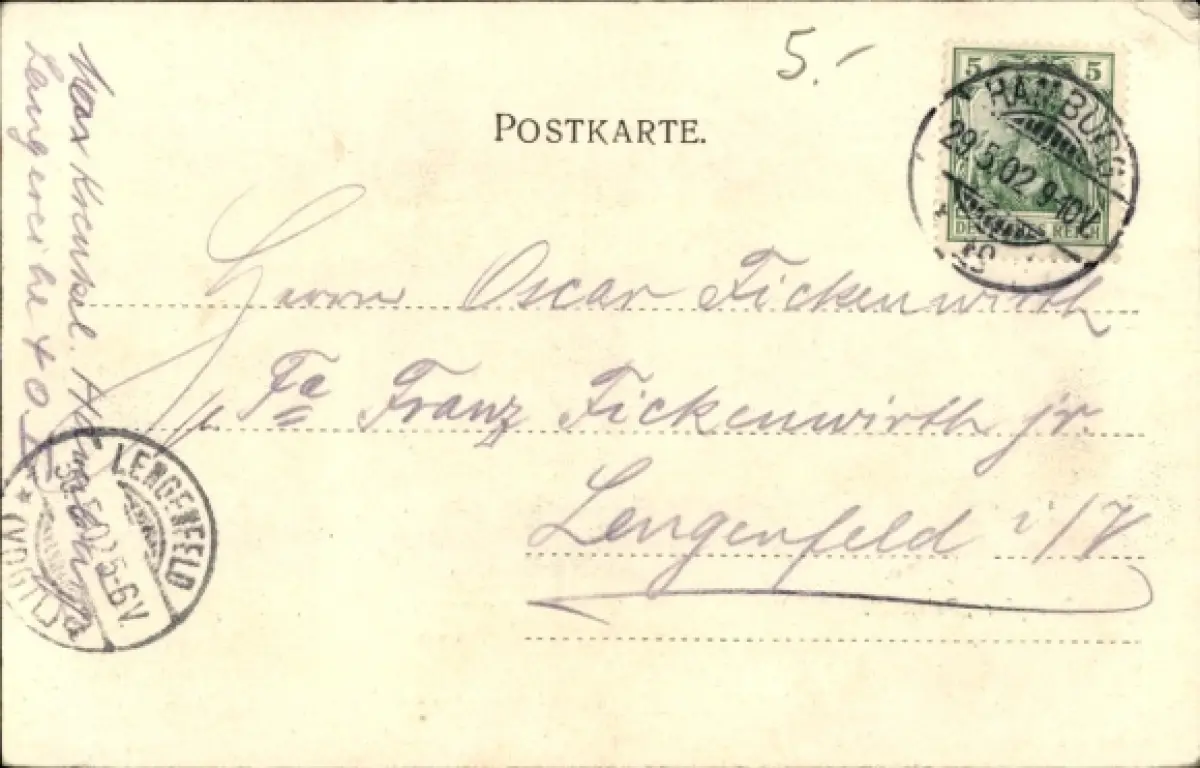 5.-
POSTKARTE.
5 5
DEUTSCHES REICH
HAMBURG
29.5.02. 9-10V.
Herrn Oscar Fickenwirth
Fa Franz Fickenwirth jr.
Lengenfeld i/V
Max
Langereihe 40
LENGENFELD
30.5.02. 5-6V.
(VOGTL.)